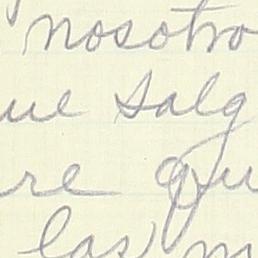 nosotro
ue salg
re qu
las m